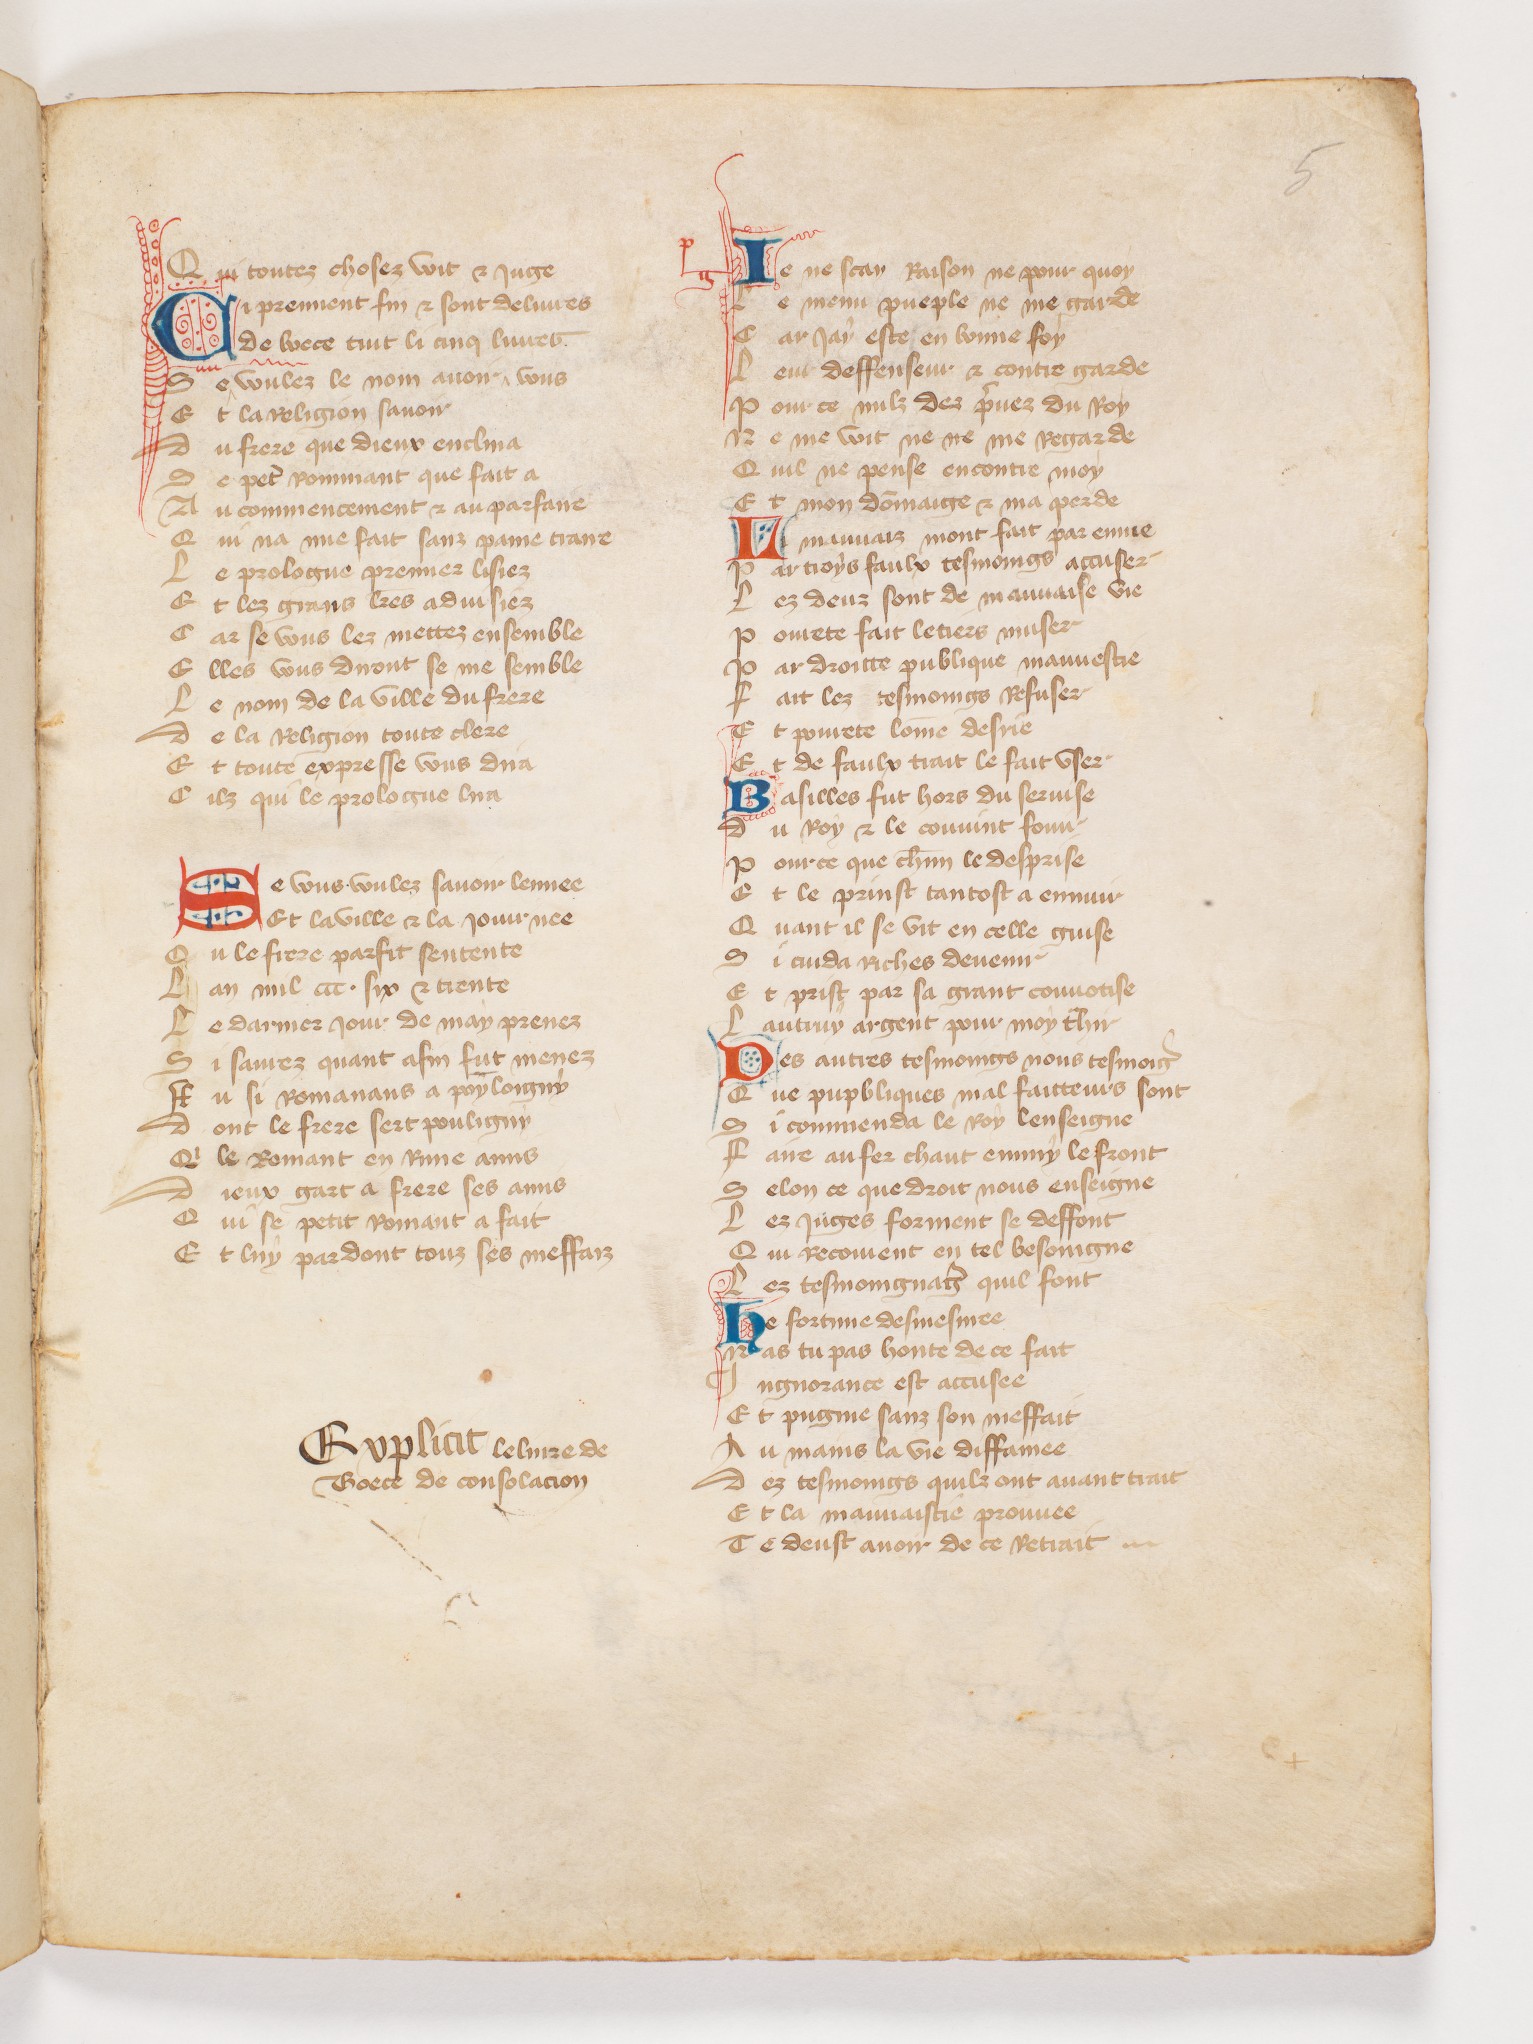 5
Qui toutez chosez voit & Juge
Ci prennent fin & sont deliures
de boece tuit li cinq liures
Se voulez le nom auoir vous
Et la Religion sauoir
Du frere que dieux enclina
De pet Rommant que fait a
Au commencement & au parfaire
Qui na mie fait sanz paine traire
Le prologue premier lisiez
Et lez grans lres aduisiez
Car se vous lez mettez ensemble
Elles vous diront se me semble
Le nom de la ville du frere
De la Religion toute clere
Et toute expresse vous dira
Cilz qui le prologue lira
Se vous voulez sauoir lennee
Et la ville & la Journee
Ou le frere parfit sentente
Lan mil ccc. six & trente
Le darnier Jour de may prenez
Si saurez quant a fin fut menez
Fu si Romanans a poyloigny
Dont le frere sert pouligny
Qi le Romant en Rime a mis
Dieux gart a frere ses amis
Qui se petit Romant a fait
Et luy pardont touz ses meffaiz
Explicit le liure de
Boece de consolacion
p
g
Ie ne scay Raison ne pour quoy
Le menu pueple ne me garde
Car Jay este en bonne foy
Leur deffenseur & contre garde
Pour ce nulz dez priuez du Roy
Ne me voit ne ne me Regarde
Quil ne pense encontre moy
Et mon domaige & ma perde
Li mauuaiz mont fait par enuie
Par troys faulx tesmoings accuser
Lez deuz sont de mauuaise vie
Pourete fait le tiers muser
Par droitte publique mauuestie
Fait lez tesmoings Refuser
Et pourete lome desrie
Et de faulx trait le fait vser
Basilles fut hors du seruise
Du Roy & le conuint fouir
Pource que chun le desprise
Et le prinst tantost a ennuir
Quant il se vit en celle guise
Si cuida riches deuenir
Et prist par sa grant couuotise
Lautruy argent pour moy thir
Des autres tesmoings nous tesmoig
Que pupbliques mal faitteurs sont
Si commenda le Roy lenseigne
Faire au fer chaut emmy le front
Selon ce que droit nous enseigne
Lez Juges forment se deffont
Qui Recoiuent en tel besoingne
Lez tesmoingnag quil font
He fortune desmesuree
Nas tu pas honte de ce fait
Ingnorance est accusee
Et pugnie sanz son meffait
Au mains la vie diffamee
Dez tesmoings quilz ont auant trait
Et la mauuaistie prouuee
Te deust auoir de ce Retrait